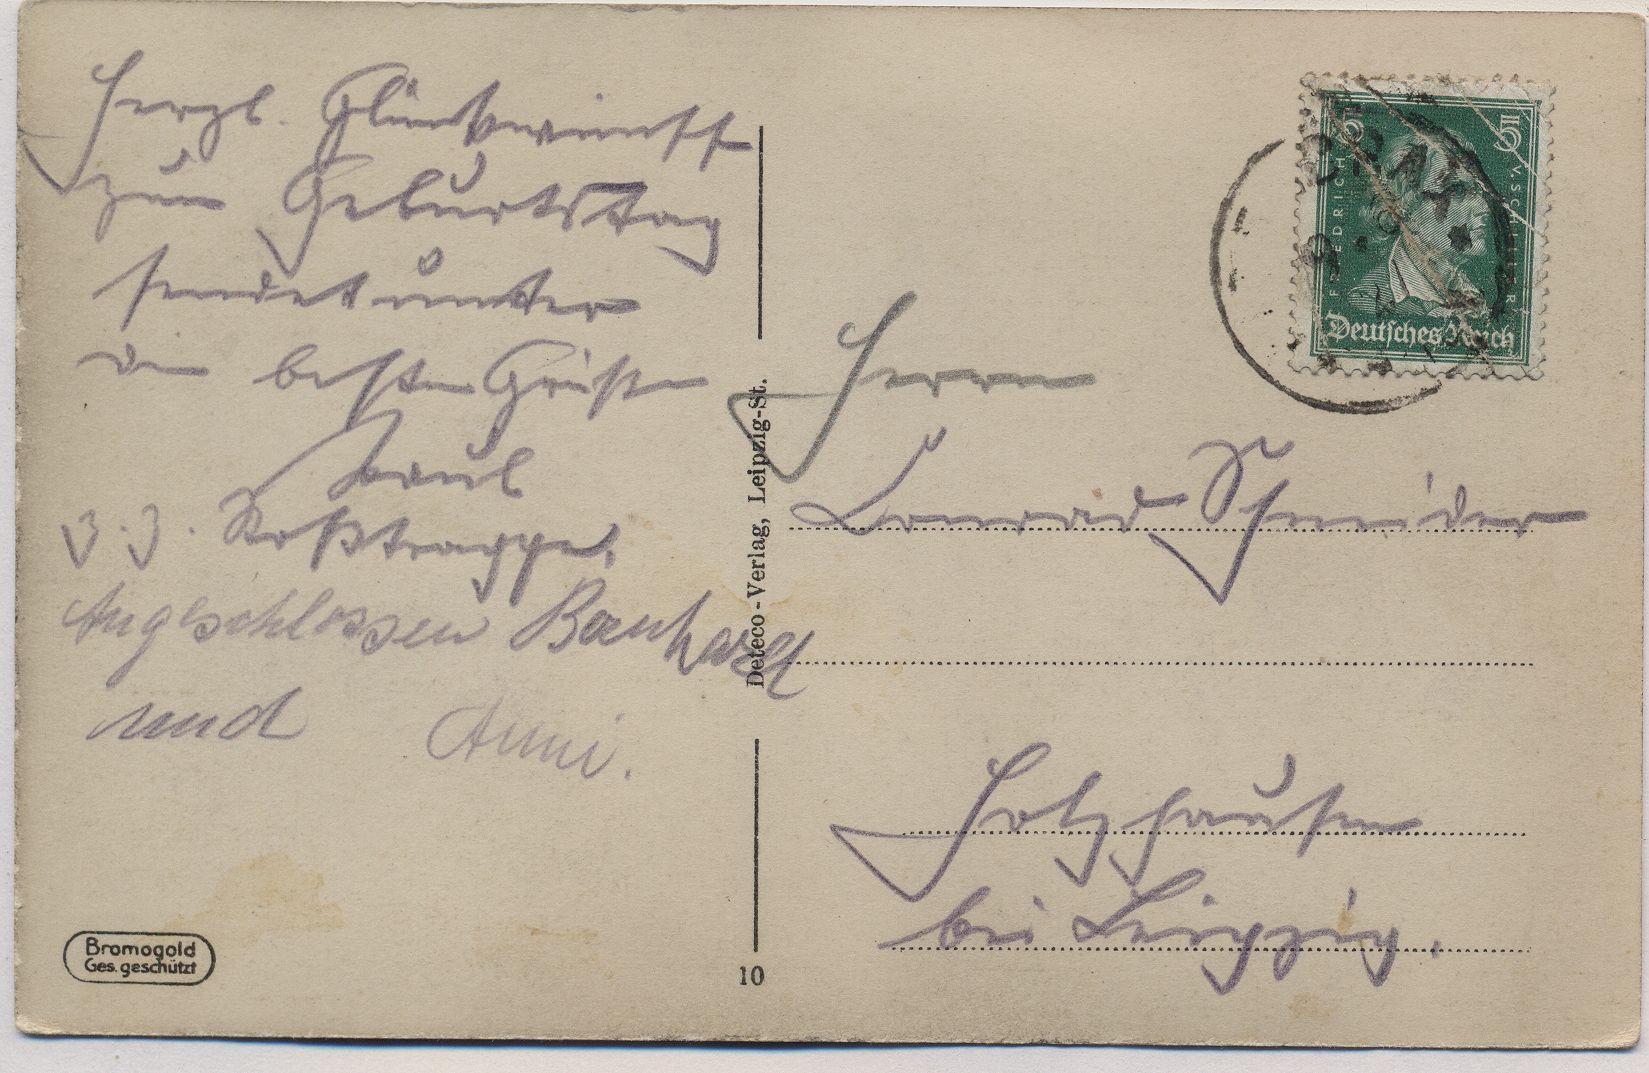 Herzl. Glückwunsch
zum Geburtstag
sendet unter
den besten Grüßen
Paul
z.Z. Roßtrappe.
Angeschlossen Bernhardt
und Anni.
Herrn
Conrad Schneider
Holzhausen
bei Leipzig.
5 5
FRIEDRICH V. SCHILLER
Deutsches Reich
Deteco-Verlag, Leipzig-St.
10
Bromogold
Ges. geschützt